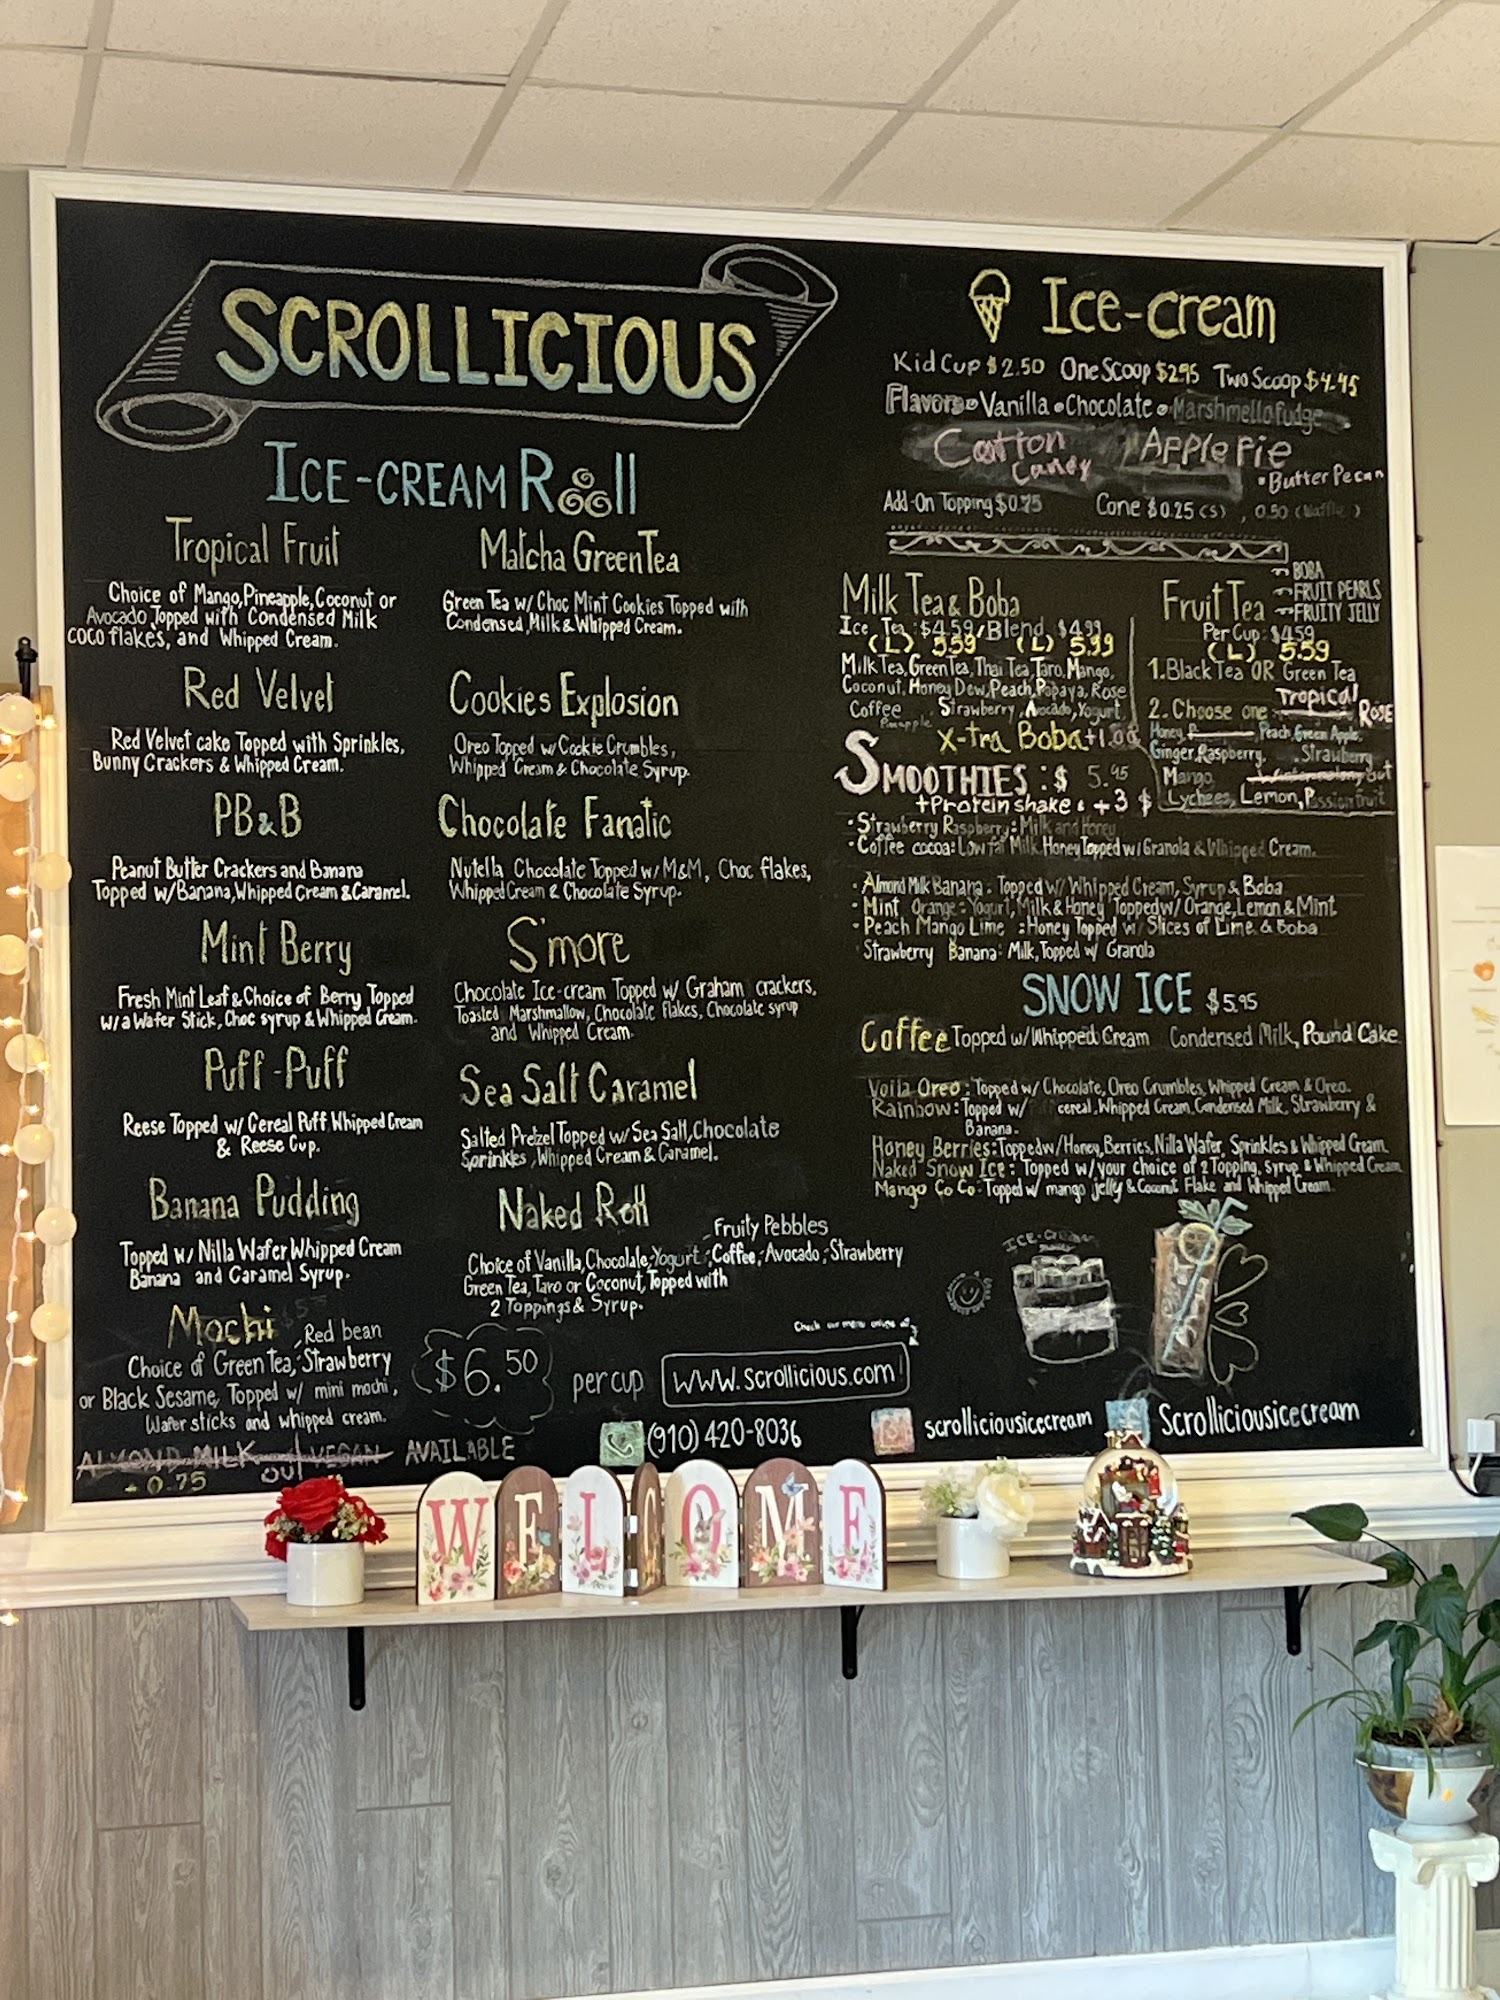 SCROLLICIOUS
ICE-CREAM Roll
Tropical Fruit
Choice of Mango, Pineapple, Coconut or
Avocado Topped with Condensed Milk
coco flakes, and Whipped Cream.
Red Velvet
Red Velvet cake Topped with Sprinkles,
Bunny Crackers & Whipped Cream.
PB&B
Peanut Butter Crackers and Banana
Topped w/Banana, Whipped Cream & Caramel.
Mint Berry
Fresh Mint Leaf & Choice of Berry Topped
w/a Wafer Stick, Choc syrup & Whipped Cream.
Puff-Puff
Reese Topped w/ Cereal Puff Whipped Cream
& Reese Cup.
Banana Pudding
Topped w/ Nilla Wafer Whipped Cream
Banana and Caramel Syrup.
Mochi
, Red bean
Choice of Green Tea, Strawberry
or Black Sesame, Topped w/ mini mochi,
Wafer sticks and whipped cream.
ALMOND MILK and VEGAN AVAILABLE
0.75 out
Matcha Green Tea
Green Tea w/ Choc Mint Cookies Topped with
Condensed Milk & Whipped Cream.
Cookies Explosion
Oreo Topped w/ Cookie Crumbles,
Whipped Cream & Chocolate Syrup.
Chocolate Fanatic
Nutella Chocolate Topped w/ M&M, Choc flakes,
Whipped Cream & Chocolate Syrup.
S'more
Chocolate Ice-cream Topped w/ Graham crackers,
Toasted Marshmallow, Chocolate flakes, Chocolate syrup
and Whipped Cream.
Sea Salt Caramel
Salted Pretzel Topped w/ Sea Salt, Chocolate
Sprinkles, Whipped Cream & Caramel.
Naked Roll
Fruity Pebbles
Choice of Vanilla, Chocolate, Yogurt, Coffee, Avocado, Strawberry
Green Tea, Taro or Coconut, Topped with
2 Toppings & Syrup.
$6.50 per cup
Check our menu online at
www.scrollicious.com
(910) 420-8036
scrolliciousicecream
Scrolliciousicecream
Ice-cream
Kid Cup $2.50 One Scoop $2.95 Two Scoop $4.45
Flavors • Vanilla • Chocolate • Marshmello fudge
Cotton Candy Apple Pie
• Butter Pecan
Add-On Topping $0.75 Cone $0.25 (s), 0.50 (Waffle)
Milk Tea & Boba
Ice Tea: $4.59/Blend $4.99
(L) 5.59 (L) 5.99
Milk Tea, Green Tea, Thai Tea, Taro, Mango,
Coconut, Honey Dew, Peach, Papaya, Rose
Coffee Strawberry, Avocado, Yogurt
Pineapple
X-tra Boba +1.00
Fruit Tea
BOBA
FRUIT PEARLS
FRUITY JELLY
Per Cup: $4.59
(L) 5.59
1. Black Tea OR Green Tea
2. Choose one Tropical ROSE
Honey, Peach, Green Apple,
Ginger, Raspberry, Strawberry
Mango
Lychees, Lemon, Passion fruit
SMOOTHIES: $5.95
+Protein shake: +3 $
• Strawberry Raspberry: Milk and Honey
• Coffee cocoa: Low fat Milk, Honey Topped w/ Granola & Whipped Cream.
• Almond Milk Banana: Topped w/ Whipped Cream, Syrup & Boba
• Mint Orange: Yogurt, Milk & Honey Topped w/ Orange, Lemon & Mint.
• Peach Mango Lime: Honey Topped w/ Slices of Lime & Boba
• Strawberry Banana: Milk, Topped w/ Granola
SNOW ICE $5.95
Coffee Topped w/ Whipped Cream Condensed Milk, Pound Cake
Voila Oreo: Topped w/ Chocolate, Oreo Crumbles, Whipped Cream & Oreo.
Rainbow: Topped w/ cereal, Whipped Cream, Condensed Milk, Strawberry &
Banana.
Honey Berries: Topped w/ Honey, Berries, Nilla Wafer, Sprinkles & Whipped Cream
Naked Snow Ice: Topped w/ your choice of 2 Topping, Syrup & Whipped Cream
Mango Co Co: Topped w/ mango jelly & Coconut Flake and Whipped Cream.
ICE-CREAM
WELCOME